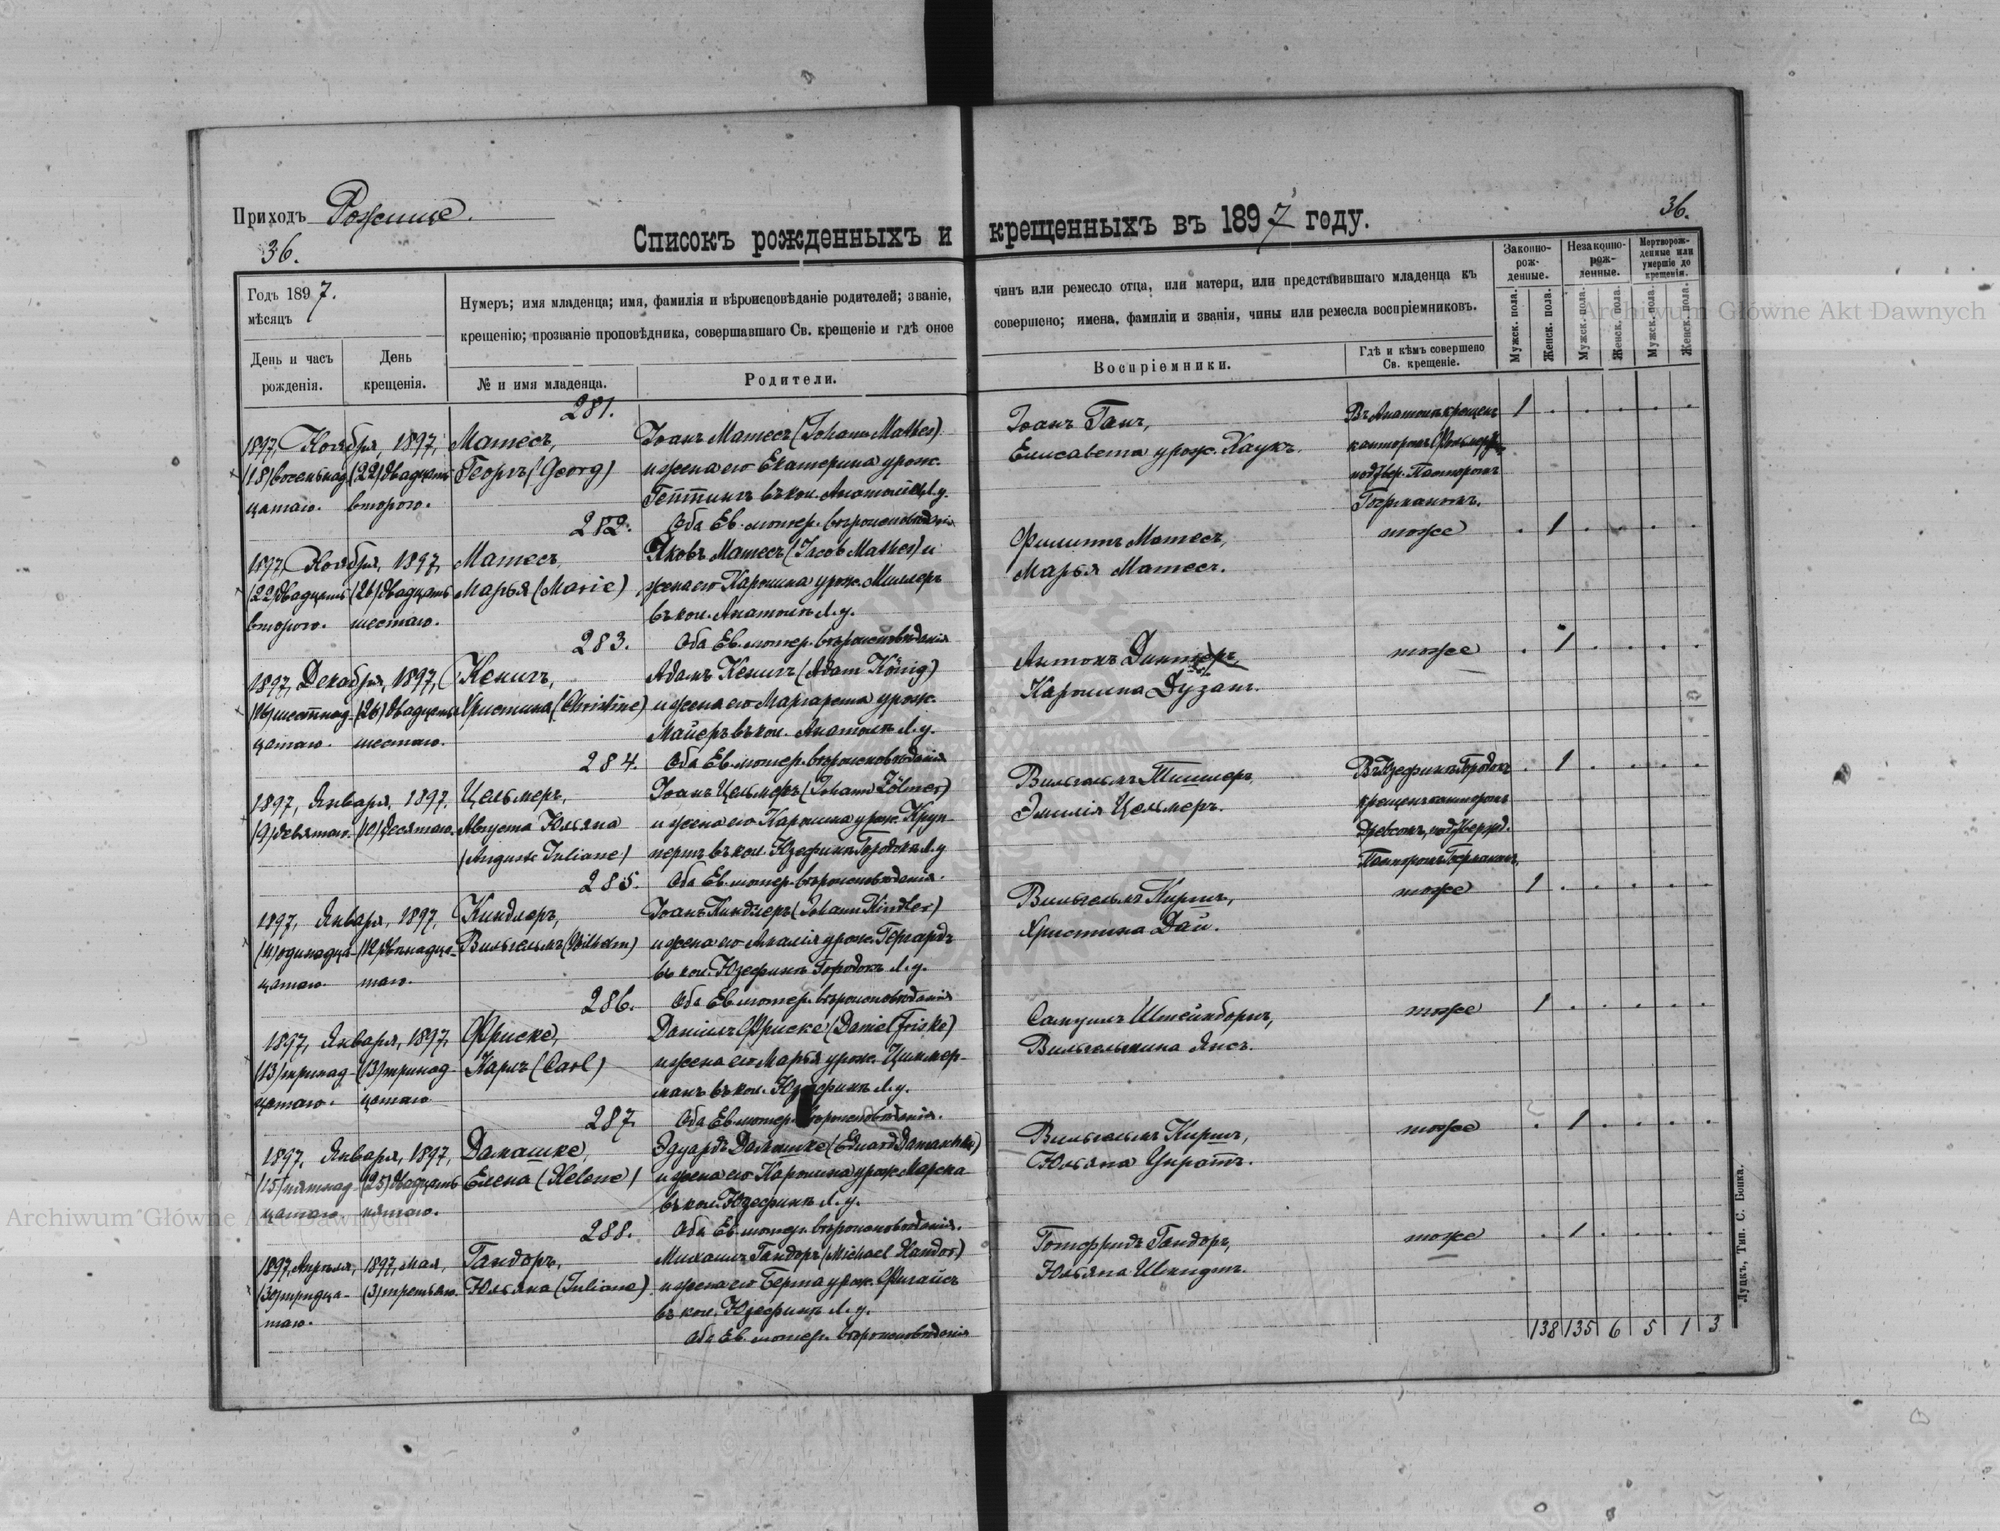 Приходъ Рожище.
36.
Списокъ рожденныхъ и крещенныхъ въ 1897 году.
36.
Годъ 1897.
мѣсяцъ
День и часъ
рожденія.
День
крещенія.
Нумеръ; имя младенца; имя, фамилія и вѣроисповѣданіе родителей; званіе,
крещенію; прозваніе проповѣдника, совершавшаго Св. крещеніе и гдѣ оное
№ и имя младенца.
Родители.
чинъ или ремесло отца, или матери, или представившаго младенца къ
совершено; имена, фамиліи и званія, чины или ремесла воспріемниковъ.
Воспріемники.
Гдѣ и кѣмъ совершено
Св. крещеніе.
Законно-
рож-
денные.
Незаконно-
рож-
денные.
Мертворож-
денные или
умершіе до
крещенія.
Мужск. пола.
Женск. пола.
Мужск. пола.
Женск. пола.
Мужск. пола.
Женск. пола.
281.
1897, Ноября, 1897,
(18) восемьнад- (22) двадцать
цатаго. второго.
Матесъ,
Георгъ (Georg)
Іоанъ Матесъ (Johann Mathes)
и жена его Екатерина урож.
въ кол. Л.у.
Оба Ев. лютер. вѣроисповѣданія
Іоанъ Ганъ,
Елисавета урож. Хаукъ.
крещенъ
канторомъ
подтвер. Пасторомъ
1 . . . . .
282.
1897, Ноября, 1897,
(22) двадцать (26) двадцать
второго. шестаго.
Матесъ,
Марья (Marie)
Яковъ Матесъ (Jacob Mathes) и
жена его Каролина урож. Миллеръ
въ кол. Анатолія Л.у.
Оба Ев. лютер. вѣроисповѣданія
Филиппъ Матесъ,
Марья Матесъ.
тоже
. 1 . . . .
283.
1897, Декабря, 1897,
(16) шестнад- (26) двадцать
цатаго. шестаго.
Кенигъ,
Христина (Christine)
Адамъ Кенигъ (Adam König)
и жена его Маргарета урож.
Майеръ въ кол. Анатолія Л.у.
Оба Ев. лютер. вѣроисповѣданія
Антонъ
Каролина
тоже
. 1 . . . .
284.
1897, Января, 1897,
(9) девятаго. (10) десятаго.
Цельмеръ,
Августа Юльяна
(Auguste Juliane)
Іоанъ Цельмеръ (Johann Zölmer)
и жена его Каролина урож. Круп-
пертъ въ кол. Юзефинъ Городокъ Л.у
Оба Ев. лютер. вѣроисповѣданія.
Вильгельмъ Тишлеръ
Эмилія Цельмеръ.
Въ Юзефинъ Городокъ
крещенъ канторомъ
подтверд.
Пасторомъ
. 1 . . . .
285.
1897, Января, 1897,
(11) одинадца- (12) двѣнадца-
цатаго. таго.
Киндлеръ,
Вильгельмъ (Wilhelm)
Іоанъ Киндлеръ (Johann Kindler)
и жена его Амалія урож. Герардъ
въ кол. Юзефинъ Городокъ Л.у.
Оба Ев. лютер. вѣроисповѣданія
Вильгельмъ Киршъ,
Христина Дай.
тоже
1 . . . . .
286.
1897, Января, 1897,
(13) тринад- (13) тринад-
цатаго. цатаго
Фриске,
Карлъ (Carl)
Даніилъ Фриске (Daniel Friske)
и жена его Марья урож. Циммер-
манъ въ кол. Юзефинъ Л.у.
Оба Ев. лютер. вѣроисповѣданія.
Самуилъ Штейнборнъ,
Вильгельмина Янсъ.
тоже
1 . . . . .
287.
1897, Января, 1897,
(15) пятнад- (25) двадцать
цатаго пятаго.
Дамашке,
Елена (Helene)
Эдуардъ Дамашке (Eduard Damaschke)
и жена его Каролина урож. Марска
въ кол. Юзефинъ Л.у.
Оба Ев. лютер. вѣроисповѣданія.
Вильгельмъ Киршъ,
Юльяна
тоже
. 1 . . . .
288.
1897, Апрѣля, 1897, мая,
(30) тридца- (3) третьяго.
таго.
Гандоръ,
Юльяна (Juliane)
Михаилъ Гандоръ (Michael Handor)
и жена его Берта урож.
въ кол. Юзефинъ Л.у.
Оба Ев. лютер. вѣроисповѣданія
Готфридъ Гандоръ,
Юльяна Шмидтъ.
тоже
. 1 . . . .
138 135 6 5 1 3
Луцкъ, Тип. С. Бонка.
Archiwum Główne Akt Dawnych
Archiwum Główne Akt Dawnych